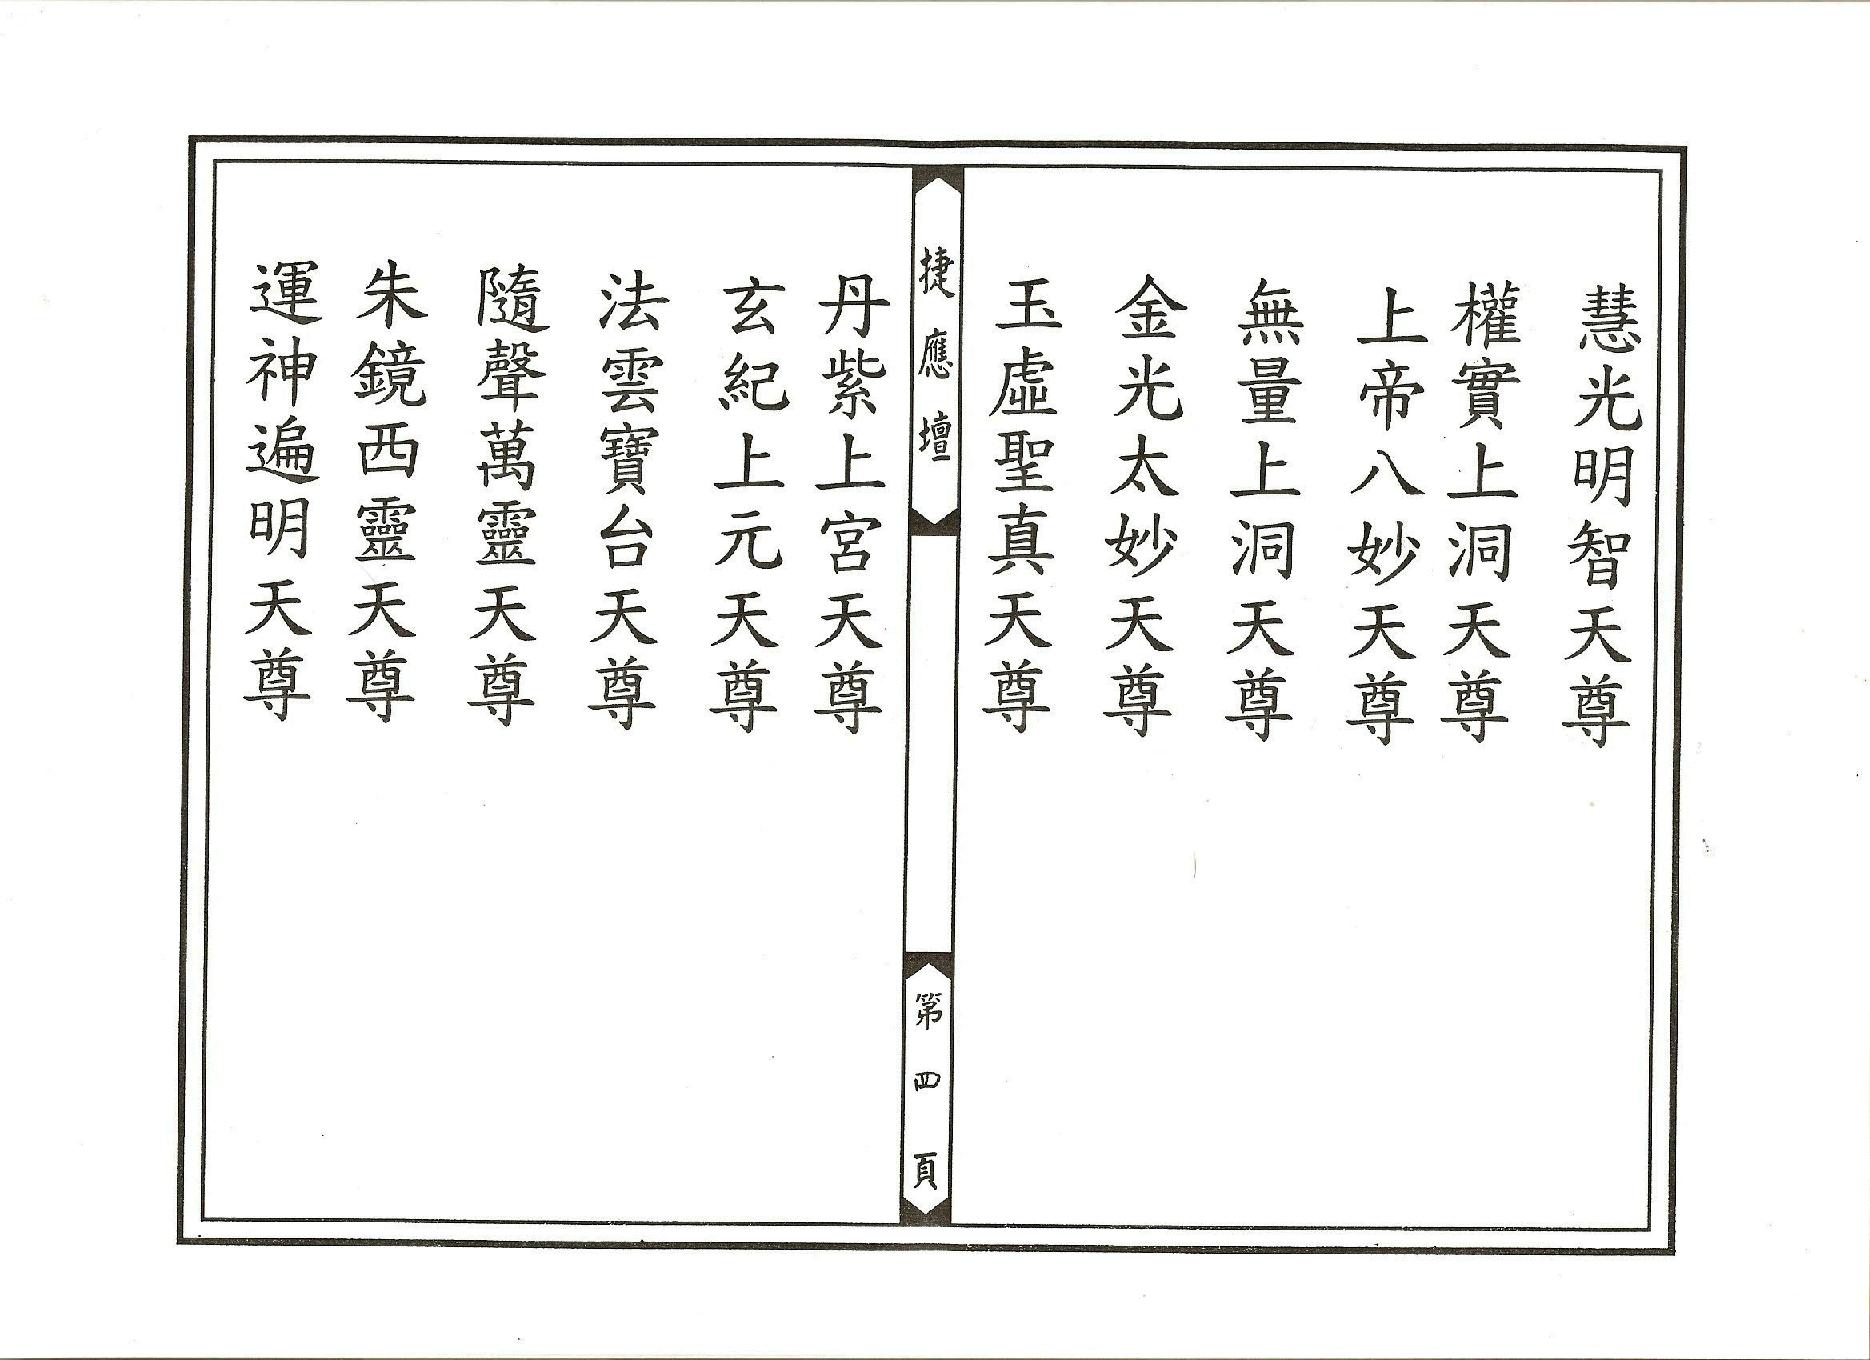 慧光明智天尊
權實上洞天尊
上帝八妙天尊
無量上洞天尊
金光太妙天尊
玉虛聖真天尊
捷應壇
第四頁
丹紫上宮天尊
玄紀上元天尊
法雲寶台天尊
隨聲萬靈天尊
朱鏡西靈天尊
運神遍明天尊